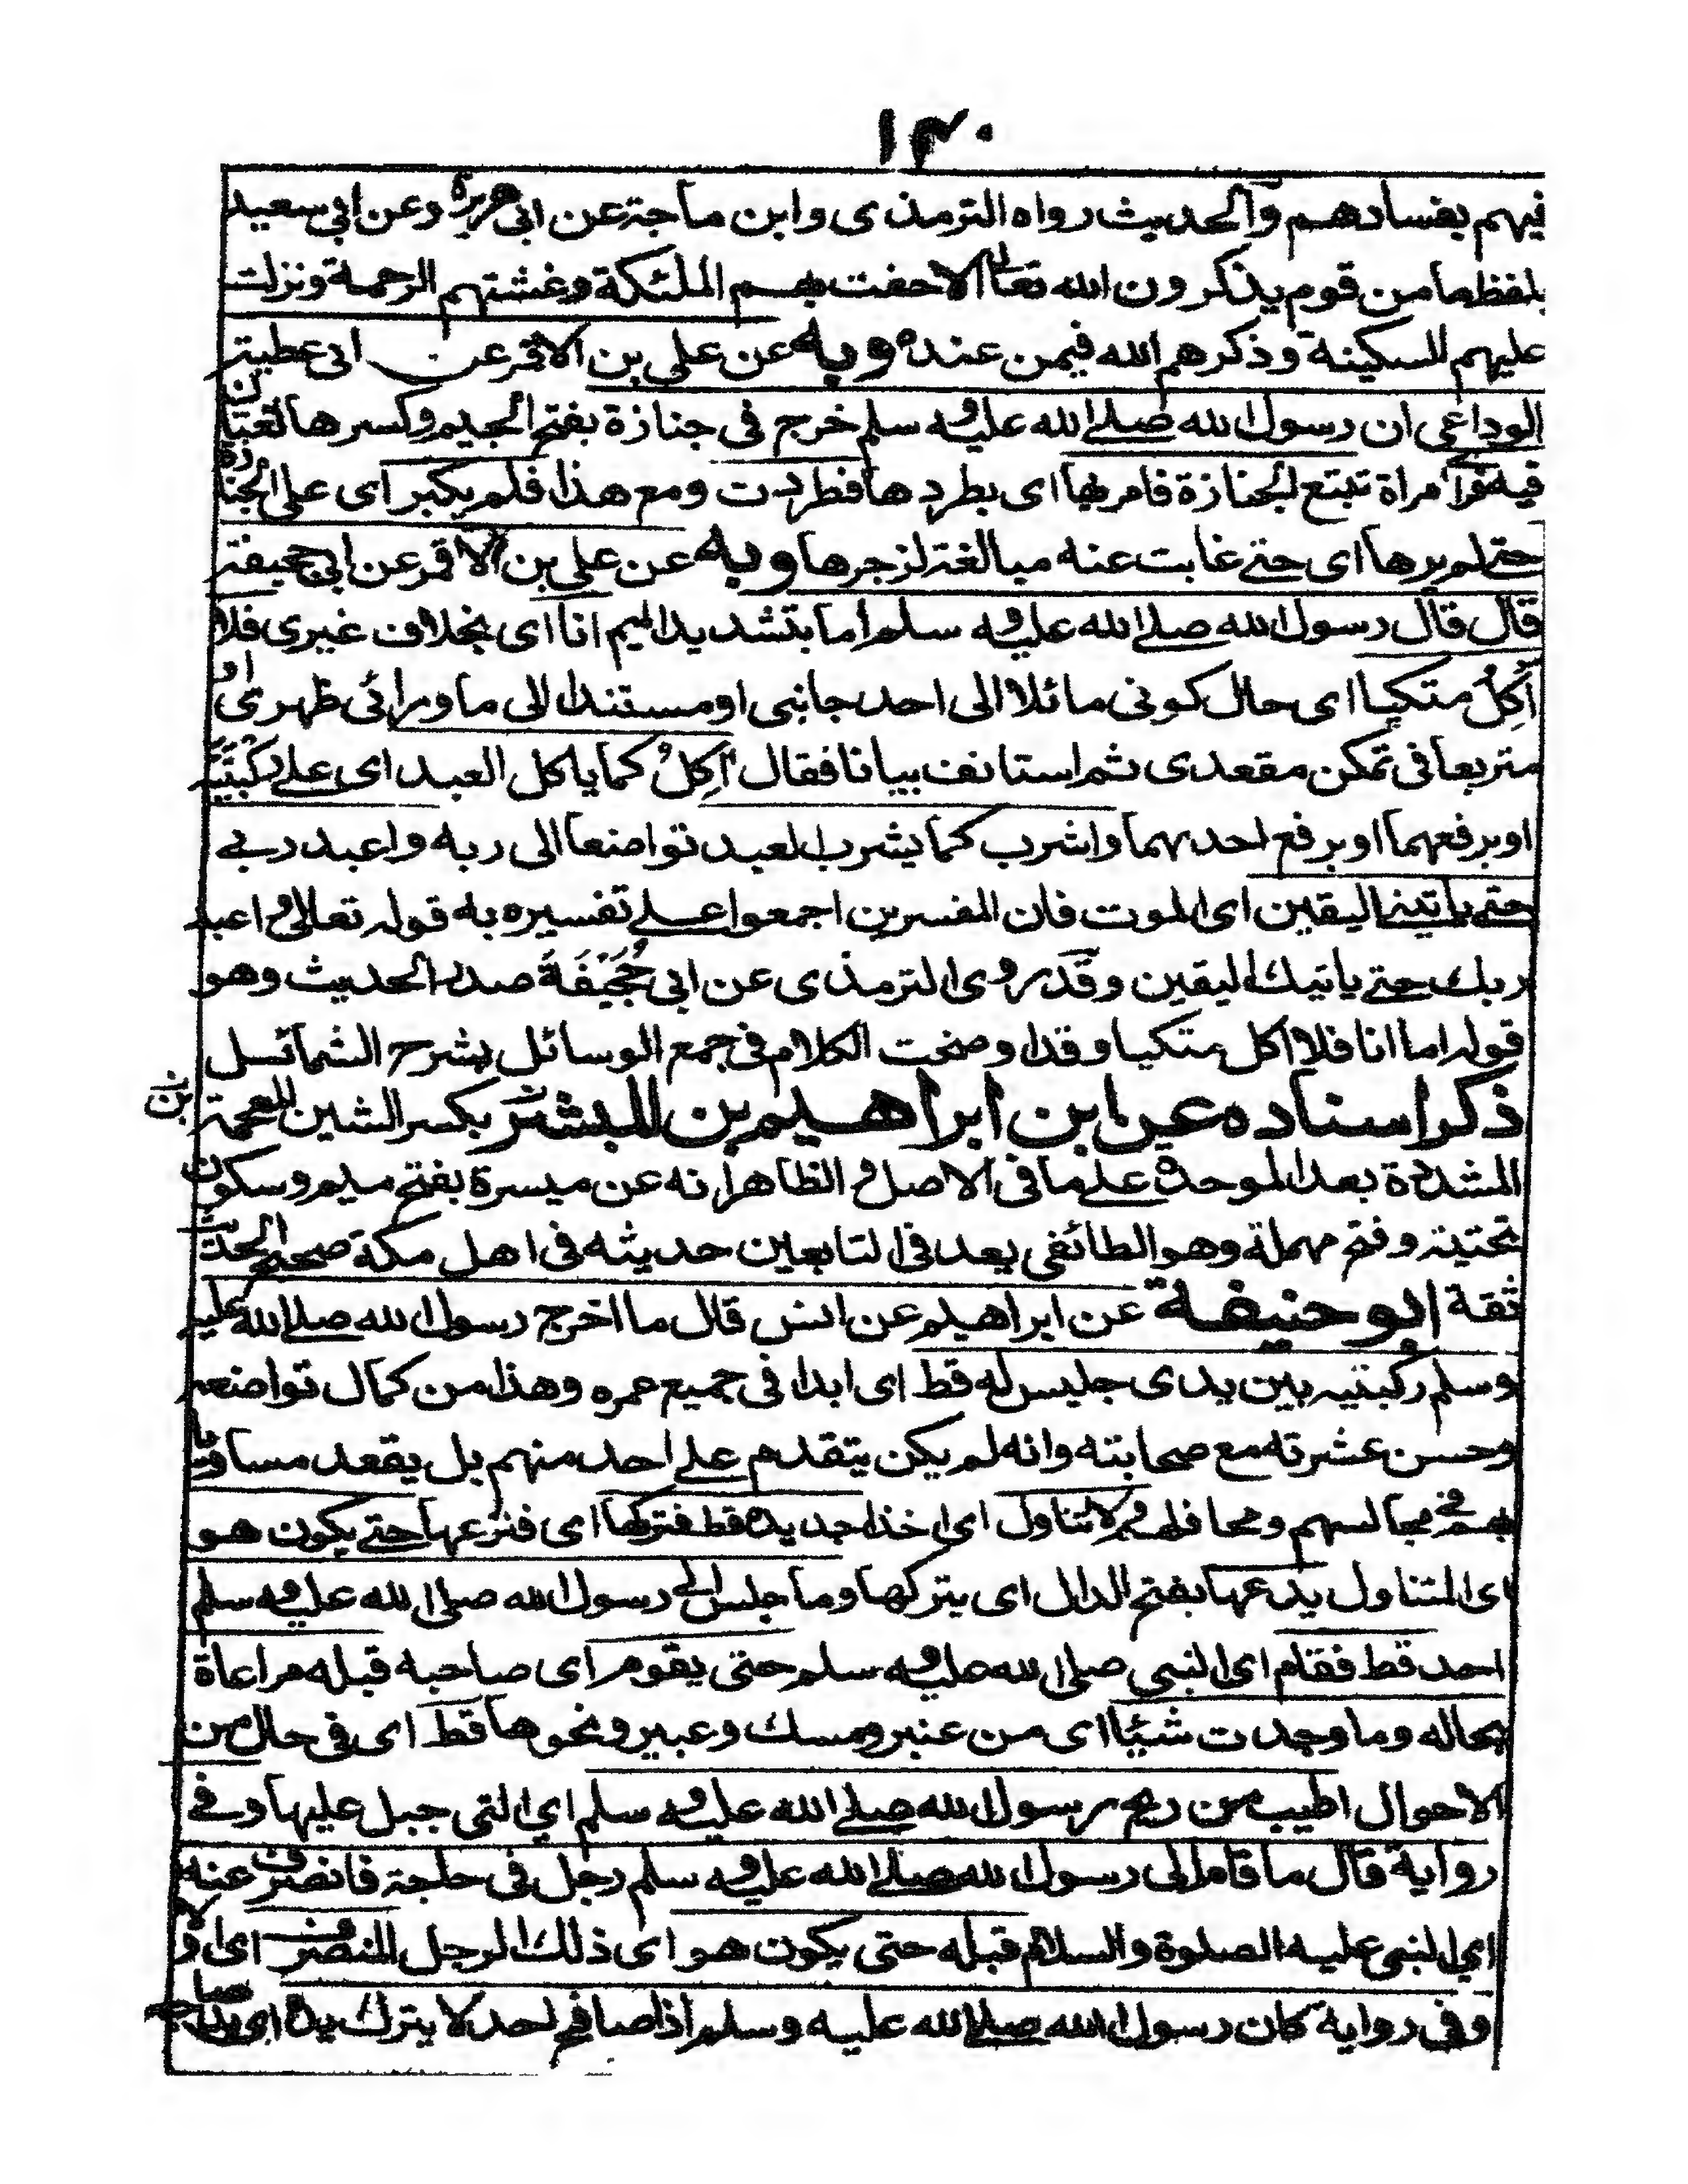 ١٣٠
فيهم بفسادهم والحديث رواه الترمذى وابن ماجة عن ابى هريرة وعن ابى سعيد
بلفظ ما من قوم يذكرون الله تعالى الا حفت بهم الملئكة وغشتهم الرحمة ونزلت
عليهم السكينة وذكرهم الله فيمن عنده وبه عن على بن الاقمر عن ابى عطية
الوداعى ان رسول الله صلى الله عليه وسلم خرج فى جنازة بفتح الجيم وكسرها لغتان
فيه فراى امراة تتبع الجنازة فامر بها اى بطردها فطردت ومع هذا فلم يكبر اى على الجنازة
حتى لم يرها اى حتى غابت عنه مبالغة لزجرها وبه عن على بن الاقمر عن ابى جحيفة
قال قال رسول الله صلى الله عليه وسلم اما بتشديد الميم انا اى بخلاف غيرى فلا
آكِلُ متكيا اى حال كونى مائلا الى احد جانبى او مستندا الى ما ورائى ظهرى او
متربعا فى تمكن مقعدى ثم استانف بيانا فقال آكِلُ كما ياكل العبد اى على ركبتيه
او برفعهما او برفع احدىهما واشرب كما يشرب العبد تواضعا الى ربه واعبد ربى
حتى ياتينى اليقين اى الموت فان المفسرين اجمعوا على تفسيره به قوله تعالى واعبد
ربك حتى ياتيك اليقين وقد روى الترمذى عن ابى جُحَيْفَةَ صدر الحديث وهو
قوله اما انا فلا اكل متكيا وقد اوضحت الكلام فى جمع الوسائل بشرح الشمائل
ذكر اسناده عن ابن ابراهيم بن المبشر بكسر الشين المعجمة
المشددة بعد الموحدة على ما فى الاصل والظاهر انه عن ميسرة بفتح ميم وسكون
تحتية وفتح مهملة وهو الطائفى يعد فى التابعين حديثه فى اهل مكة صحيح الحديث
ثقة ابو حنيفة عن ابراهيم عن انس قال ما اخرج رسول الله صلى الله عليه
وسلم ركبتيه بين يدى جليس له قط اى ابدا فى جميع عمره وهذا من كمال تواضعه
وحسن عشرته مع صحابته وانه لم يكن يتقدم على احد منهم بل يقعد مساويا
بهم فى مجالسهم ومحافلهم ولا تناول اى اخذ احد يده قط فتركها اى فنزعها حتى يكون هو
اى المتناول يدعها بفتح الدال اى يتركها وما جلس الى رسول الله صلى الله عليه وسلم
احد قط فقام اى النبى صلى الله عليه وسلم حتى يقوم اى صاحبه قبله مراعاة
بحاله وما وجدت شيئا اى من عنبر ومسك وعبير ونحوها قط اى فى حال من
الاحوال اطيب من ريح رسول الله صلى الله عليه وسلم اى التى جبل عليها وفى
رواية قال ما قام الى رسول الله صلى الله عليه وسلم رجل فى حاجة فانصرف عنه
اى النبى عليه الصلوة والسلام قبله حتى يكون هو اى ذلك الرجل المنصرف اى اولا
وفى رواية كان رسول الله صلى الله عليه وسلم اذا صافح احد لا يترك يده اى يد صاحبه